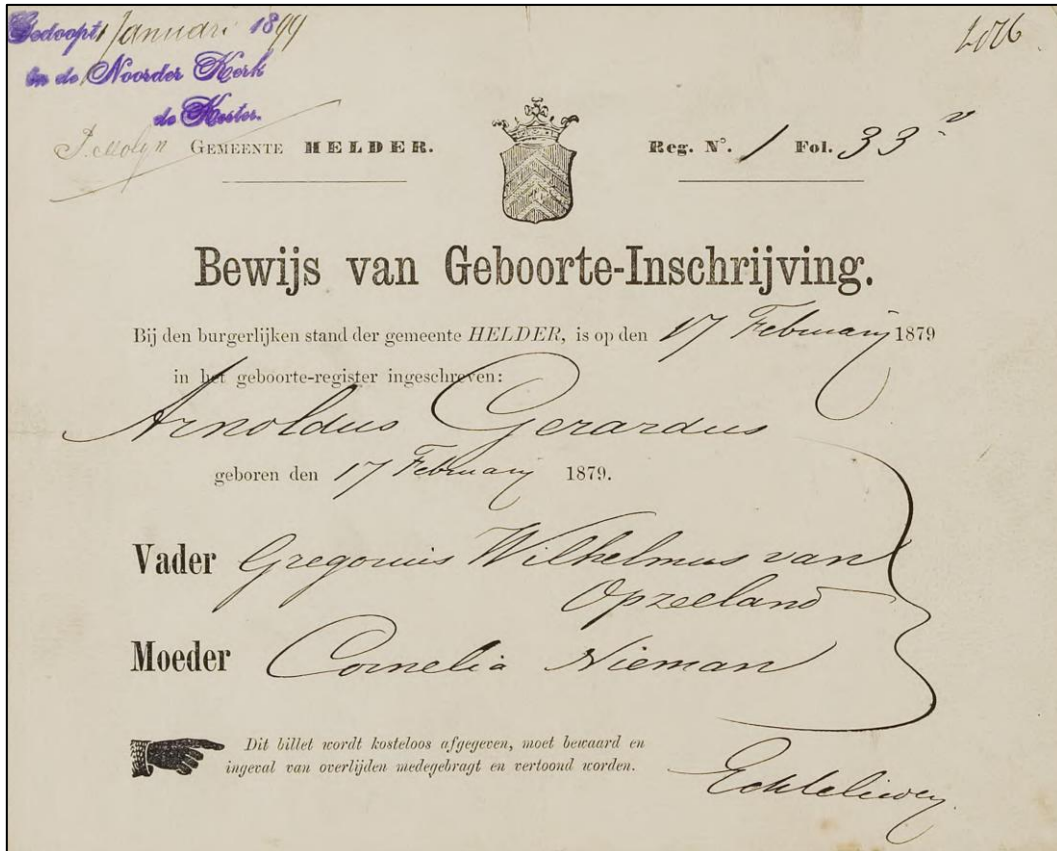 Gedoopt, 1 Januari 1899
In de Noorder Kerk
de Koster.
GEMEENTE HELDER.
Reg. N°. 1 Fol. 33 v
Bewijs van Geboorte-Inschrijving.
Bij den burgerlijken stand der gemeente HELDER, is op den 17 February 1879
in het geboorte-register ingeschreven:
Arnoldus Gerardus
geboren den 17 February 1879.
Vader Gregorius Wilhelmus van
Opzeeland
Moeder Cornelia Nieman
Dit billet wordt kosteloos afgegeven, moet bewaard en
ingeval van overlijden medegebragt en vertoond worden.